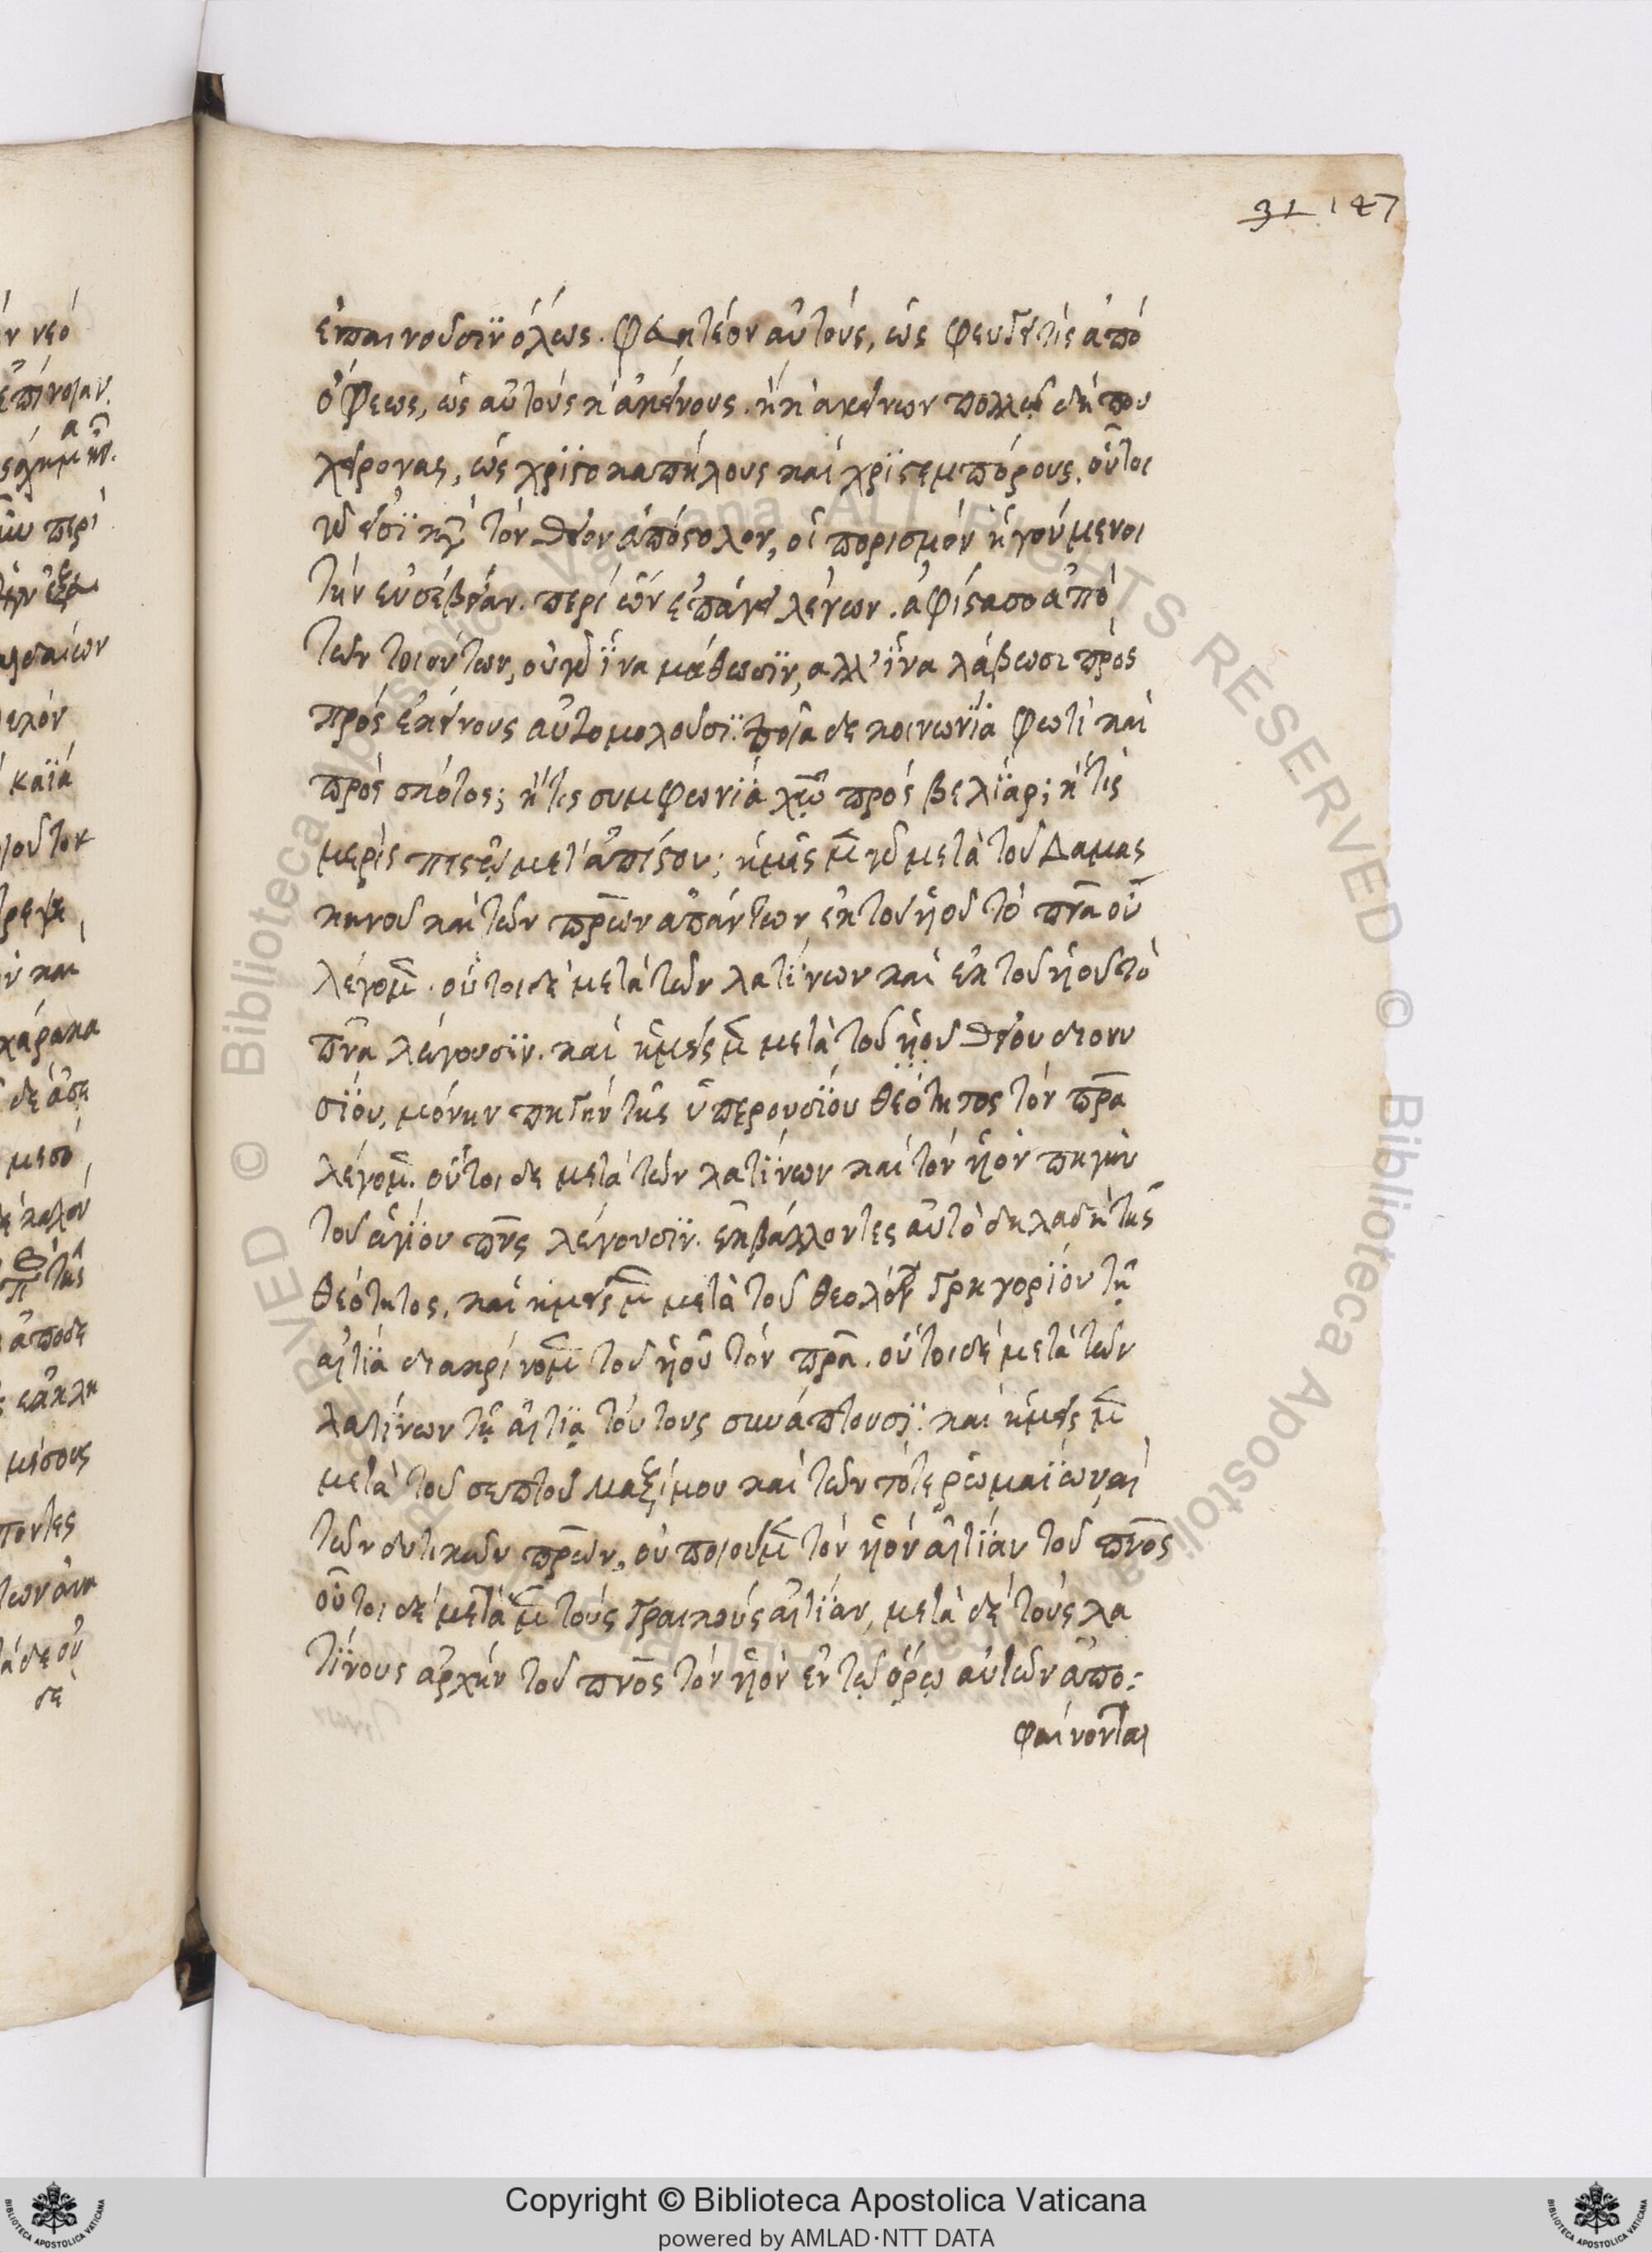 31 147
ἐπαινοῦσϊν ὅλως. φευκτέον αὐτοὺς, ὡς φεύγει τὶς ἀπὸ
ὄφεως, ὡς αὐτοὺς κἀκείνους. ἢ κἀκείνων πολλῷ δήπου
χείρονας, ὡς χρϊστοκαπήλους καὶ χρϊστεμπόρους. οὗτοι
γάρ εἰσϊ κατὰ τὸν θεῖον ἀπόστολον, οἱ πορισμὸν ἡγούμενοι
τὴν εὐσέβειαν. περὶ ὧν ἐπάγει λέγων. ἀφίστασο ἀπὸ
τῶν τοιούτων, οὐ γὰρ ἵνα μάθωσϊν, αλλ' ἵνα λάβωσι πρὸς
πρὸς ἐκείνους αὐτομολοῦσϊ. ποία δε κοινωνϊα φωτὶ καὶ
πρὸς σκότος; ἢ τὶς συμφωνϊα χῷ πρὸς βελϊαρ; ἢ τὶς
μερὶς πιστῷ μετ' ἀπίστου; ἡμεῖς μ̅ γὰρ μετὰ τοῦ Δαμας
κηνοῦ καὶ τῶν πρ̅ων ἁπάντων ἐκ τοῦ ϋοῦ τὸ πνα οὐ
λέγομ̅. οὗτοι δὲ μετὰ τῶν λατίνων καὶ ἐκ τοῦ ϋοῦ τὸ
πν̅α λέγουσϊν. καὶ ἡμεῖς μ̅ μετὰ τοῦ ἱεροῦ θείου διονυ
σϊου, μόνην πηγὴν τῆς ὑπερουσϊου θεότητος τὸν πρ̅α
λέγομ̅. οὗτοι δε μετὰ τῶν λατίνων καὶ τὸν ϋὸν πηγὴν
τοῦ ἁγϊου πν̅ς λέγουσϊν. ἐκβάλλοντες αὐτὸ δηλαδὴ τῆς
θεότητος. καὶ ἡμεῖς μ̅ μετὰ τοῦ θεολόγου γρηγορϊου τῇ
αἰτϊα διακρίνομ̅ τοῦ ϋοῦ τὸν πρ̅α. οὗτοι δὲ μετὰ τῶν
λατίνων τῇ αἰτϊᾳ τούτους συνάπτουσϊ. καὶ ἡμεῖς μ̅
μετὰ τοῦ σεπτοῦ Μαξίμου καὶ τῶν τότε ῥωμαϊων καὶ
τῶν δυτικῶν πρ̅ων, οὐ ποιοῦμ̅ τὸν ϋὸν αἰτϊαν τοῦ πν̅ος
οὗτοι δὲ μετὰ μ̅ τοὺς γραικοὺς αἰτϊαν, μετὰ δὲ τοὺς λα
τίνους ἀρχὴν τοῦ πν̅ος τὸν ϋὸν ἐν τῷ ὅρῳ αὐτῶν ἀπο:
φαίνονται
Copyright © Biblioteca Apostolica Vaticana
powered by AMLAD·NTT DATA